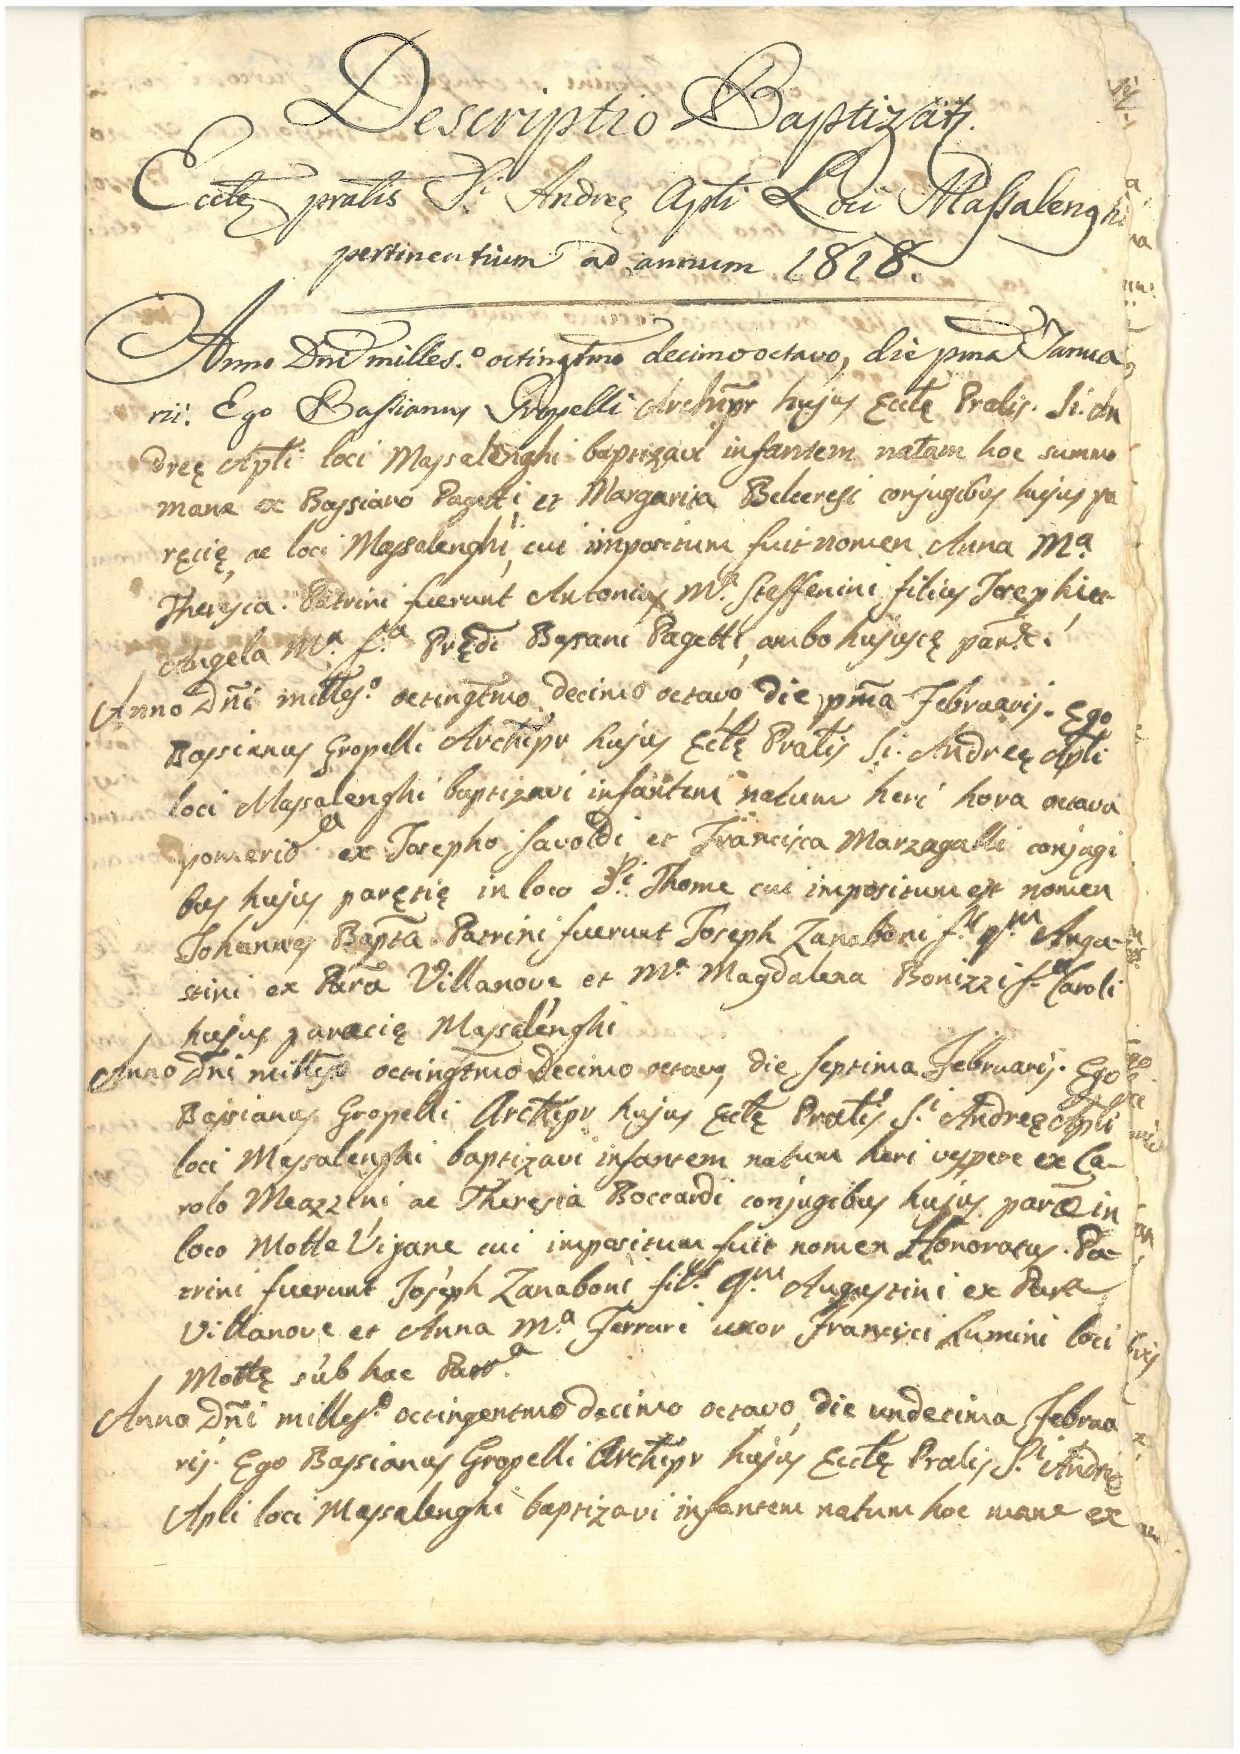 Descriptio Baptizať.
Ecctę pratis S.i Andreę Apti Loci Massalenghi
pertinentium ad annum 1818.
Anno Dm̃i milles.o octingtmo decimooctavo, die pma Janua
rii. Ego Bassianus Gropelli Archĩpr hujus Ecctę Pralis. S.i. An
dreę Apti loci Massalenghi baptizavi infantem natam hoc summo
mane ex Bassiano Pagetti et Margarita Belceresi conjugibus hujus pa
ręcię, ac loci Massalenghi, cui impositum fuit nomen Anna M.a
Theresia. Patrini fuerunt Antonius M.a Steffenini filius Josephi, et
Angela M.a f.a Prędi Bassani Pagetti, ambo hujuscę parę.
Anno Dñi milles.o octingtmo decimo octavo die pm̃a Februarij. Ego
Bassianus Gropelli Archipr hujus Ectę Pratis S.i. Andreę Apli
loci Massalenghi baptizavi infantem natum heri hora octava
pomerid.a ex Josepho Savoldi et Francisca Marzagalli conjugi
bus hujus paręcię in loco S.i Thome cui impositum est nomen
Johannes Bapta. Patrini fuerunt Joseph Zanaboni f.s q.m Augu-
stini ex Para Villanove et M.a Magdalena Bonizzi f.a Caroli
hujus paracię Massalenghi
Anno Dñi milles.o octingtmo decimo octavo, die septima Februarij. Ego
Bassianus Gropelli Archipr hujus Ectę Pratis S.i Andreę Apli
loci Massalenghi baptizavi infantem natum heri vespere ex Ca-
rolo Meazzini, ac Theresia Boccardi conjugibus hujus parœ in
loco Motte Vizane cui impositum fuit nomen Honoratus. Pa-
trini fuerunt Joseph Zanaboni fil.s q.m Augustini ex Para
Villanove et Anna M.a Ferrari uxor Francisci Lumini loci
Mottę sub hac Parr.a
Anno Dñi milles.o octingentmo decimo octavo, die undecima Februa
rij. Ego Bassianus Gropelli Archipr hujus Ecctę Pralis S.i Andreę
Apli loci Massalenghi baptizavi infantem natum hoc mane ex